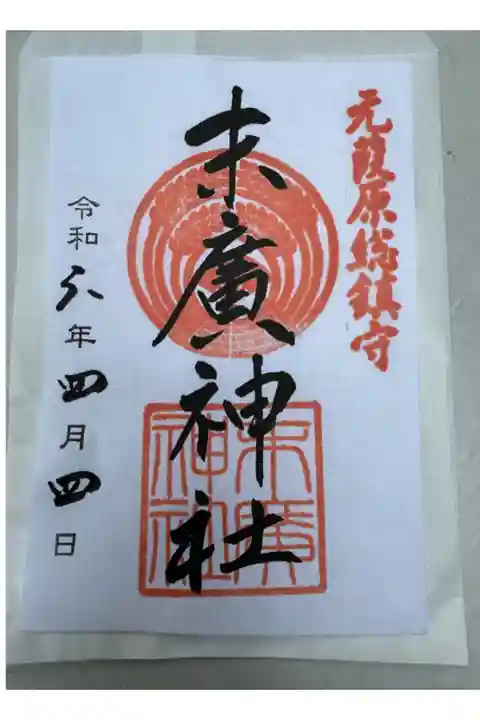 元葭原総鎮守
末廣神社
令和六年四月四日
末廣神社